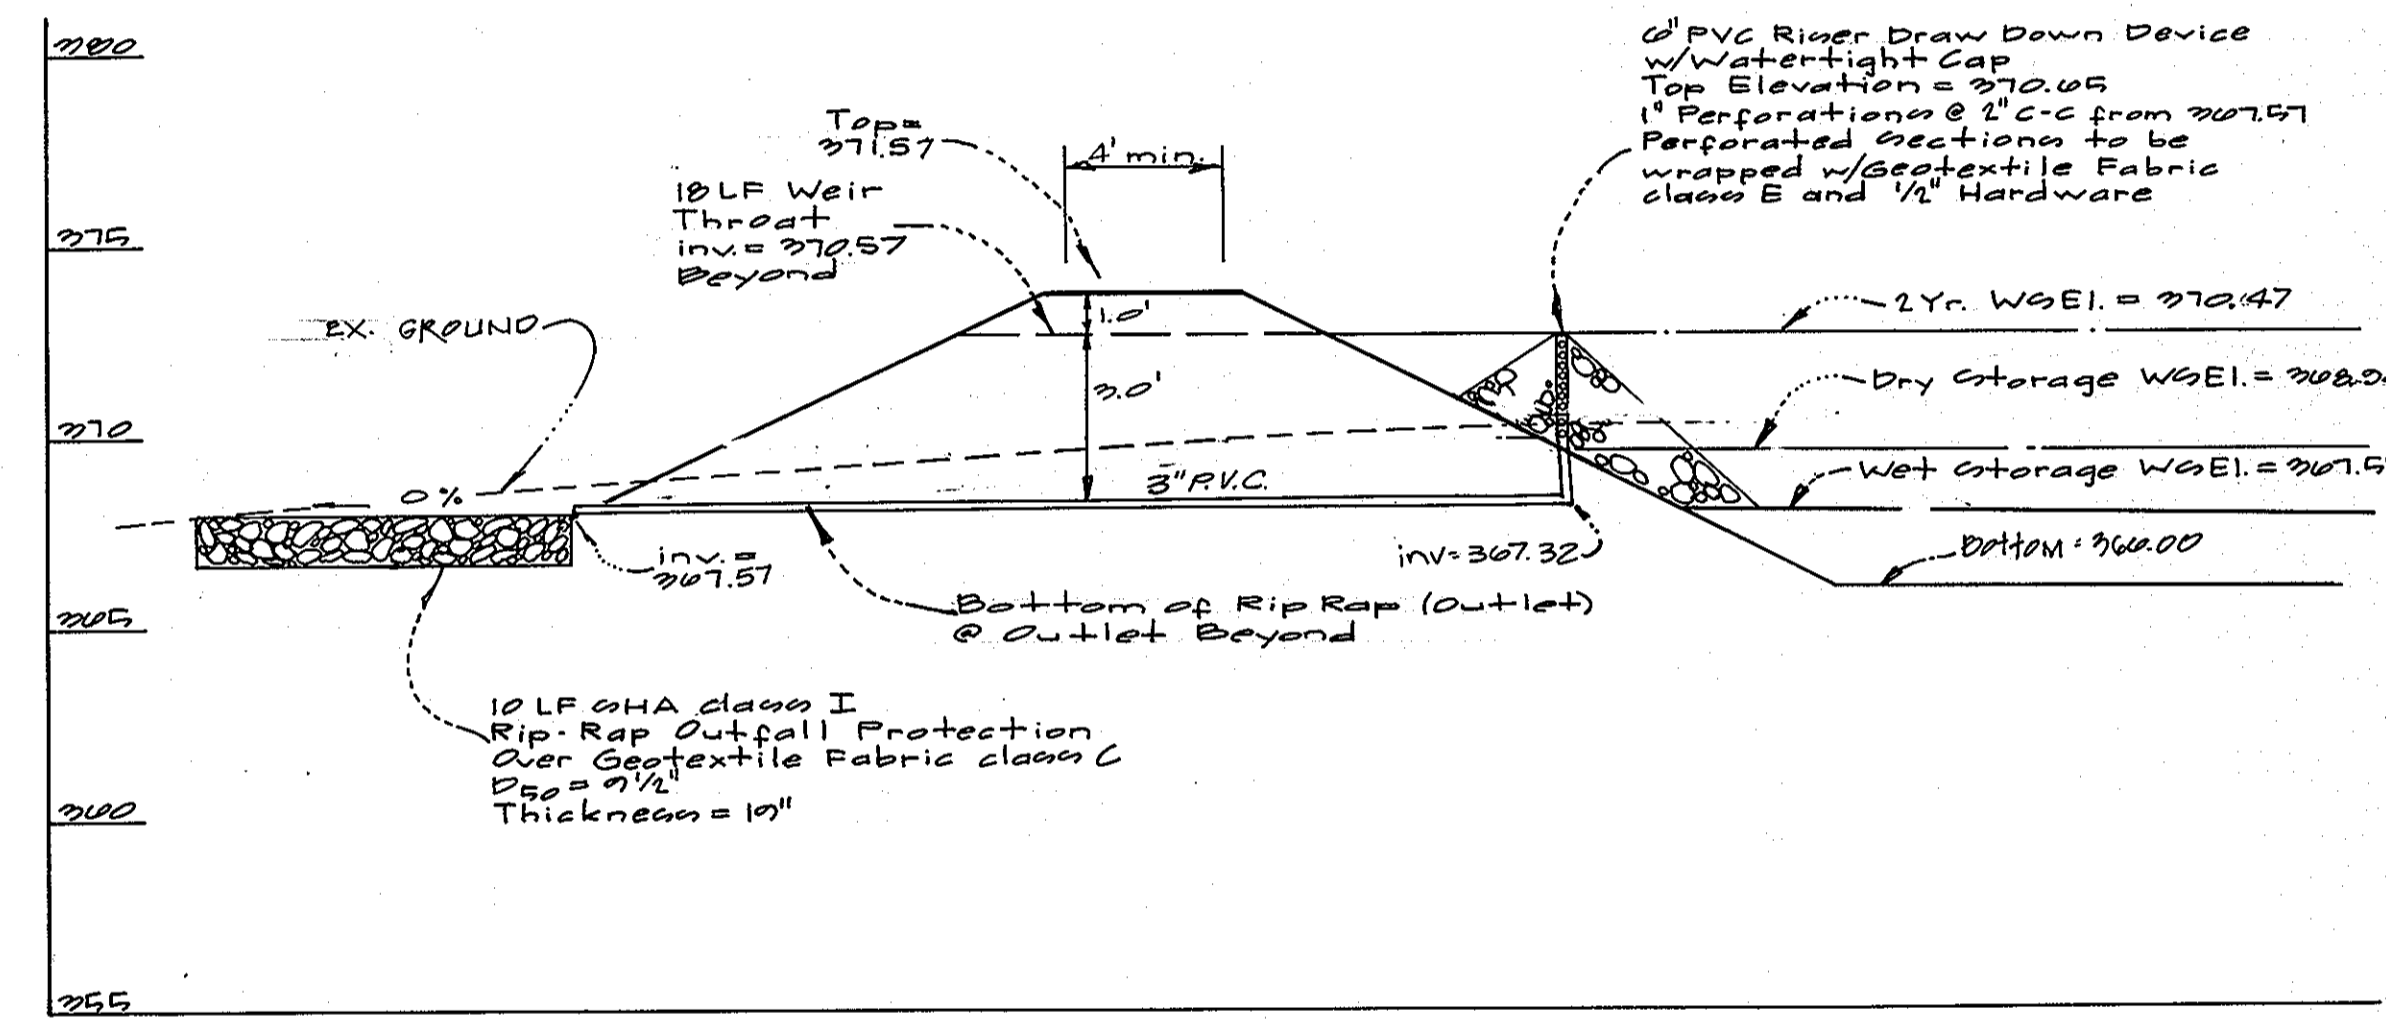 380
6" PVC Riser Draw Down Device
w/Watertight Cap
Top Elevation = 370.65
1" Perforations @ 2" C-C from 367.57
Perforated Sections to be
wrapped w/Geotextile Fabric
class E and 1/2" Hardware
Top =
371.57
4' min.
18 LF Weir
Throat
inv. = 370.57
Beyond
375
1.0'
2 Yr. WSEl. = 370.47
EX. GROUND
3.0'
Dry Storage WSEl. =
370
Wet Storage WSEl. =
0%
3" P.V.C.
inv. =
367.57
inv = 367.32
Bottom = 366.00
Bottom of Rip Rap (Outlet)
@ Outlet Beyond
365
10 LF SHA class I
Rip-Rap Outfall Protection
Over Geotextile Fabric class C
D50 = 9 1/2"
Thickness = 19"
360
355